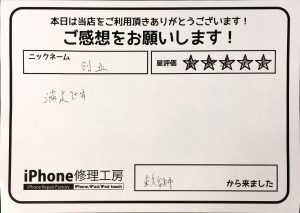 本日は当店をご利用頂きありがとうございます！
ご感想をお願いします！
ニックネーム
星評価 ★★★★★
満足です
iPhone修理工房
iPhone Repair Factory iPhone/iPad/iPod touch
から来ました